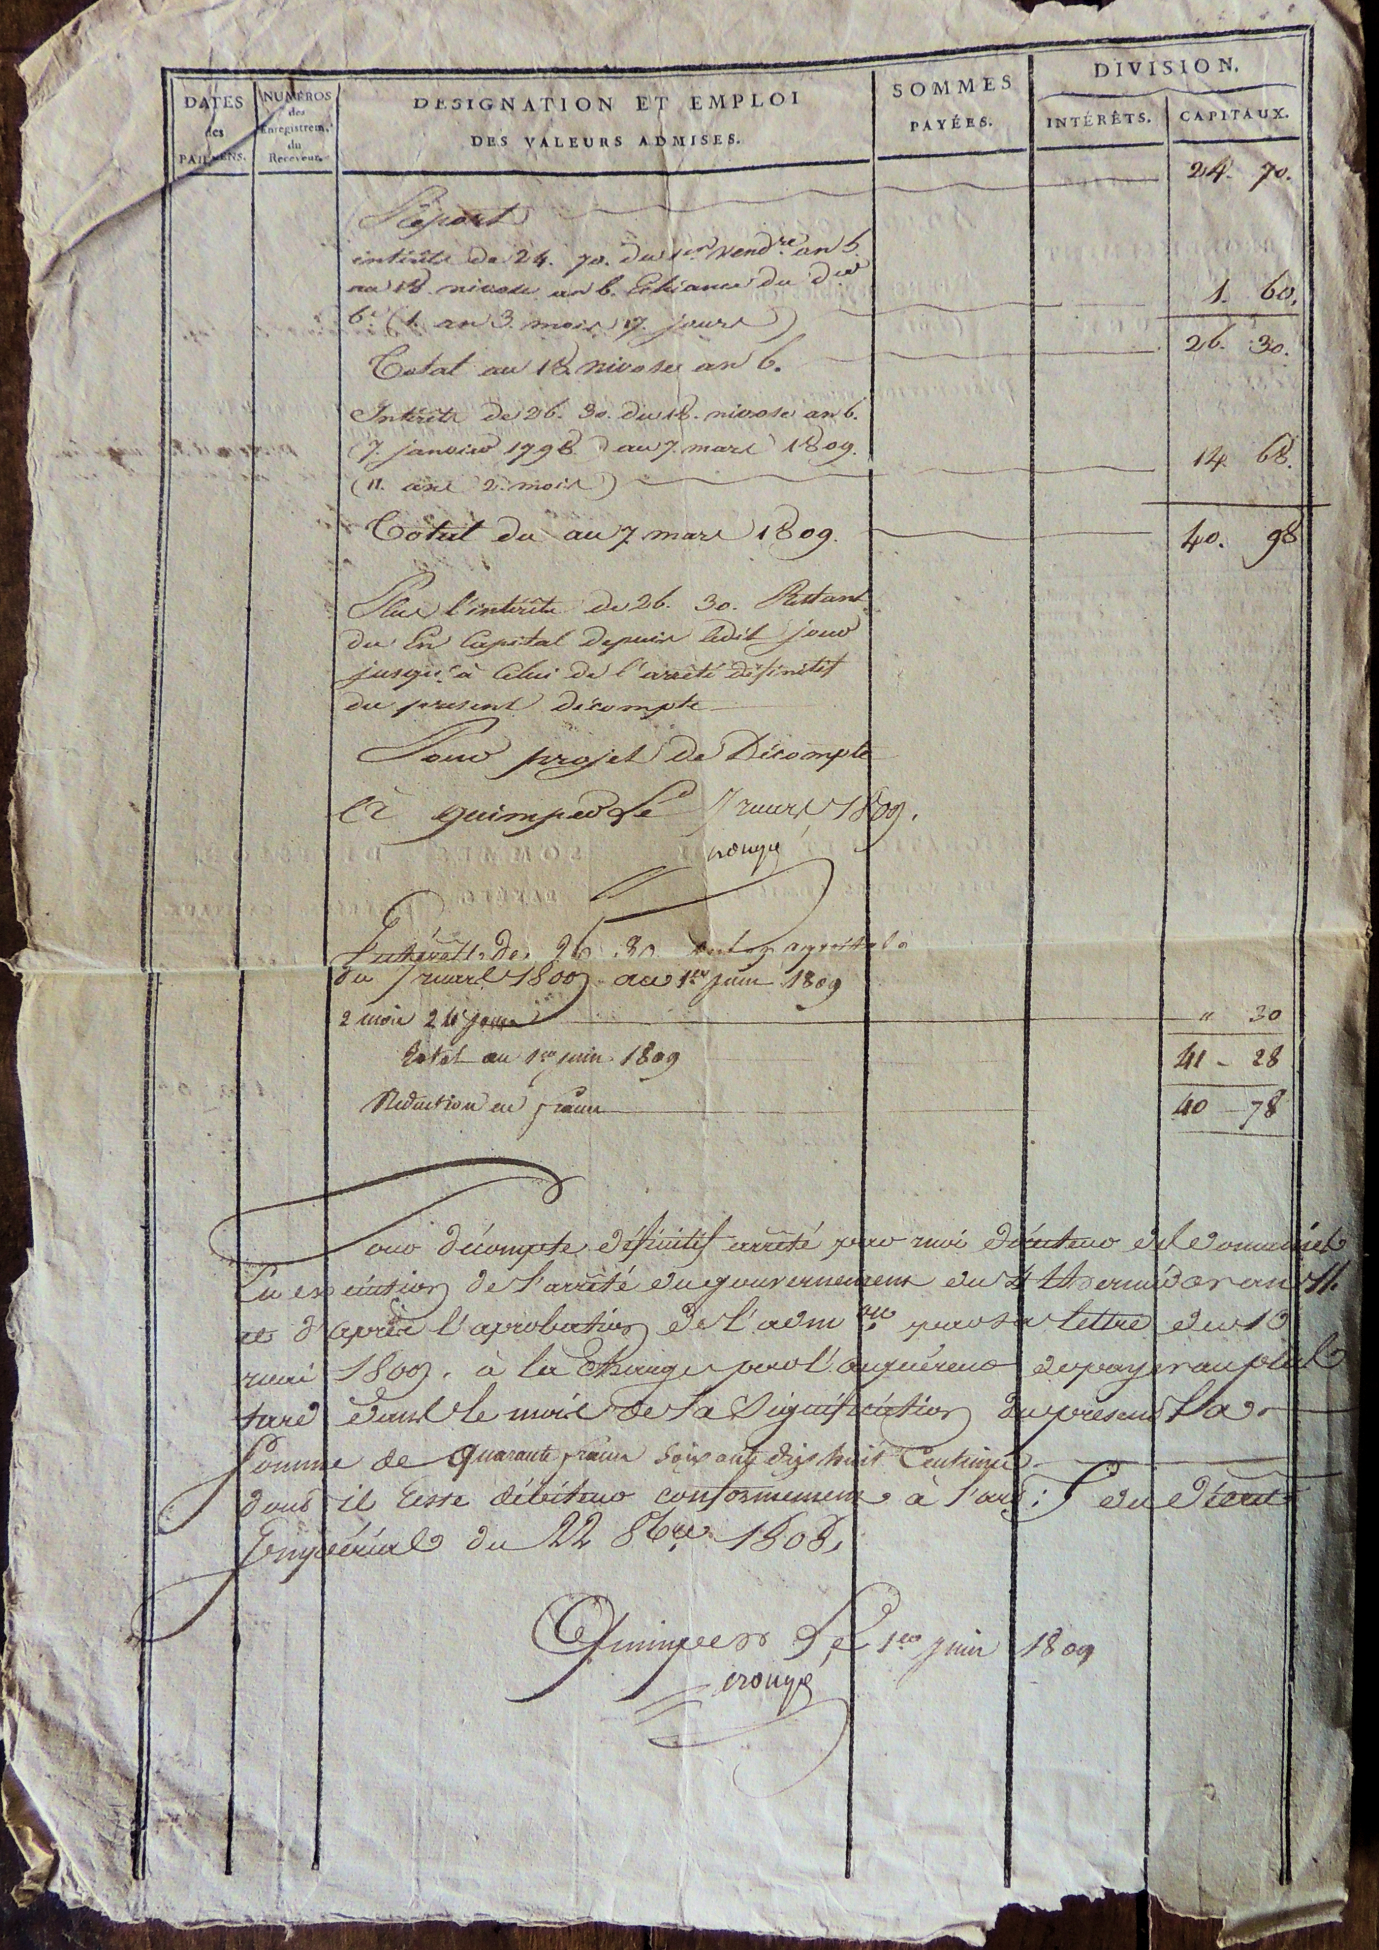 DATES des PAIEMENS.
NUMÉROS des Enregistrem.ts du Receveur.
DESIGNATION ET EMPLOI DES VALEURS ADMISES.
SOMMES PAYÉES.
DIVISION.
INTÉRÊTS.
CAPITAUX.
Report 24. 70.
intérêts de 24. 70. du 1er Vendre an 5.
au 18. nivose an 6. Echéance du
6e (1. an 3. mois 17. jours) 1. 60.
Total au 18. nivose an 6. 26. 30.
Intérêts de 26. 30. du 18. nivose an 6.
(7. janvier 1798) au 7. mars 1809.
(11. ans 2. mois) 14. 68.
Total du au 7. mars 1809. 40. 98
Plus l'intérêts de 26. 30. Restant
du En Capital depuis ledit jour
jusqu'à Celui de l'arrêté définitif
du present décompte
Pour projet de Décompte
à quimper Le 7 mars 1809.
Intérêts de 26. 30 en Capital
du 7 mars 1809 au 1er juin 1809
2 mois 24 jours " 30
total au 1er juin 1809 41 - 28
Réduction en francs 40 - 78
Pour décompte définitif arrêté par moi directeur des domaines
En exécution de l'arrêté du gouvernement du 4 thermidor an 11.
et d'après l'aprobation de l'admon par sa lettre du 10
mai 1809. à la Charge par l'acquéreur de payer au plus
tard dans le mois de la Signification du present la
Somme de quarante francs soixante dix huit Centimes
dont il reste débiteur conformément à l'art: 5 du Décret
Impérial du 22 8bre 1808.
Quimper Le 1er juin 1809